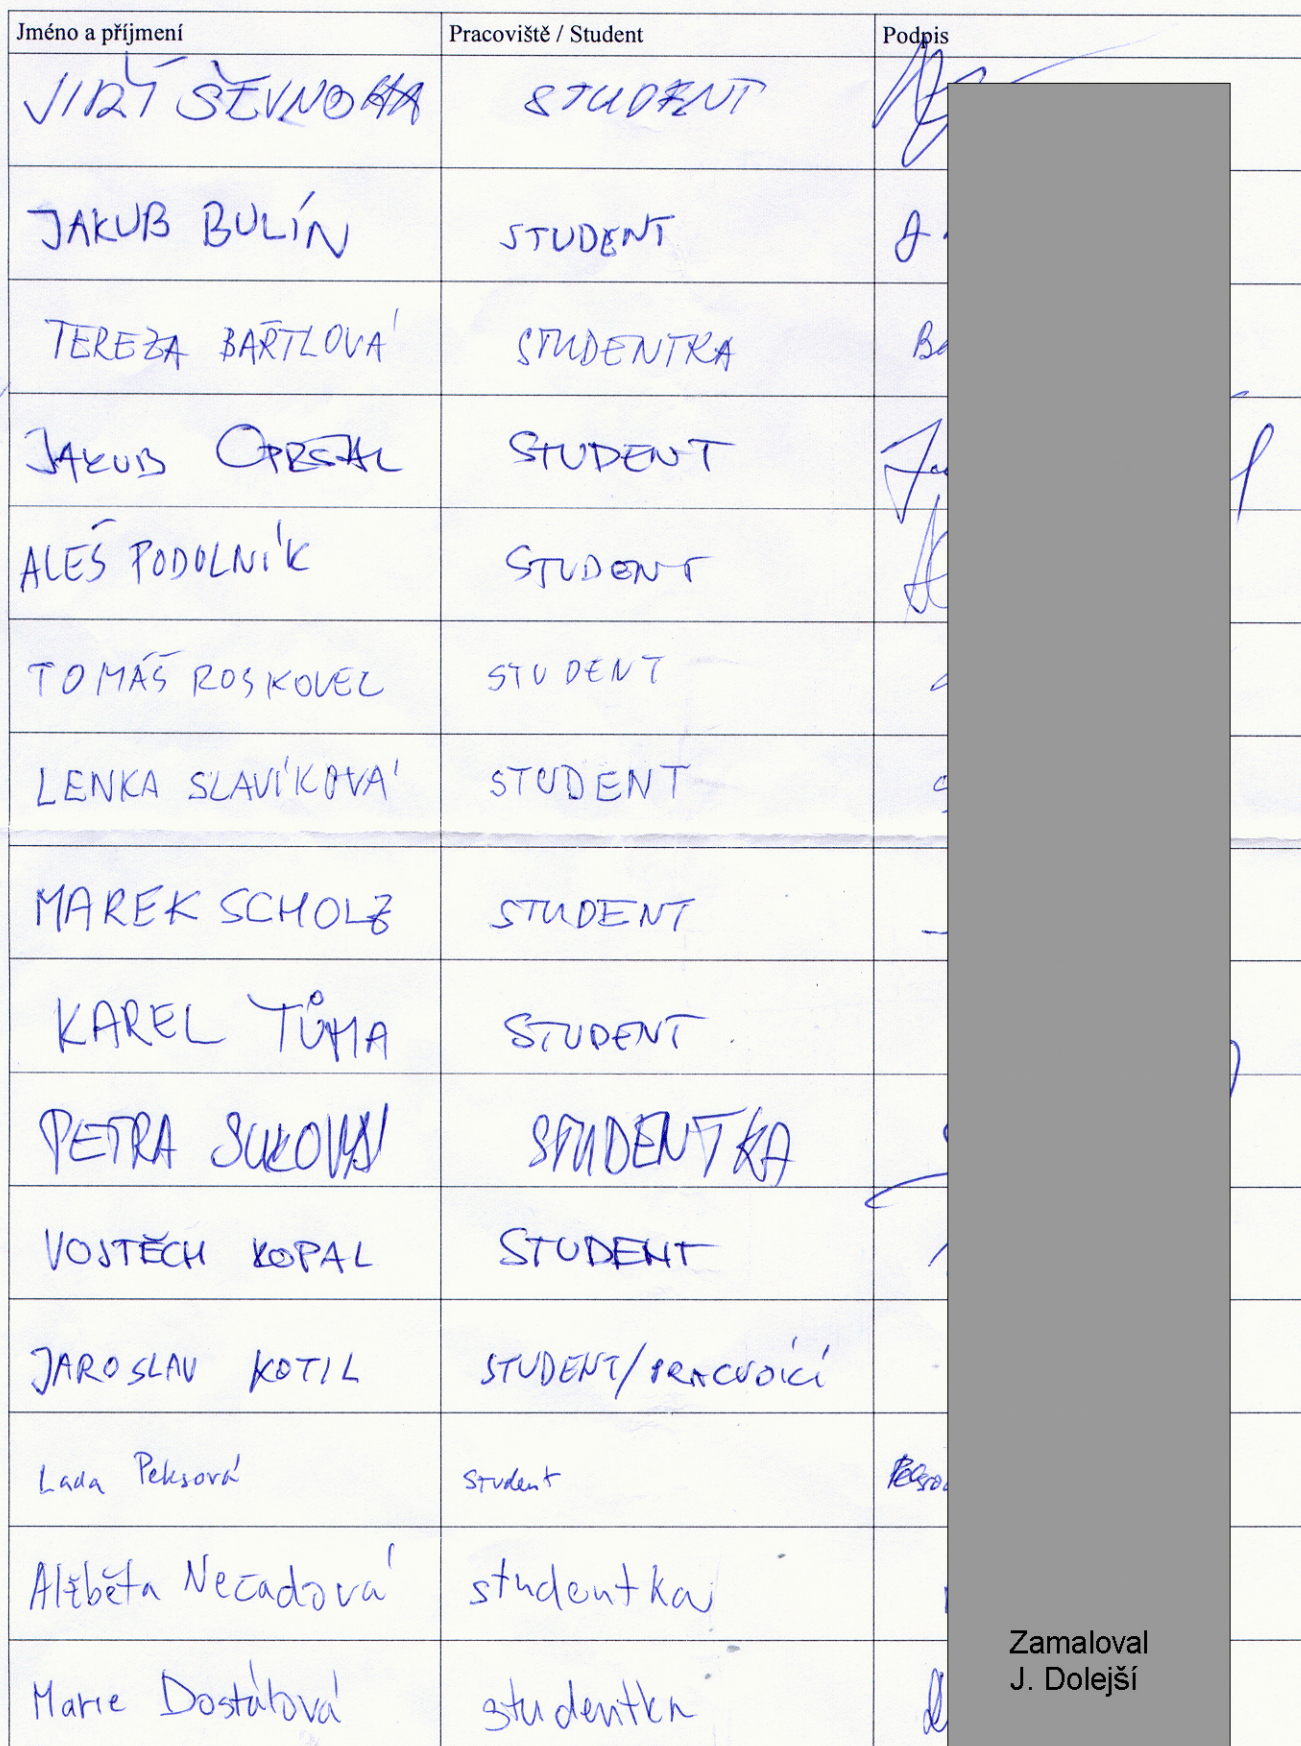 Jméno a příjmení Pracoviště / Student Podpis
JIŘÍ STUDENT
JAKUB BULÍN STUDENT
TEREZA BARTLOVÁ STUDENTKA
JAKUB OPRŠAL STUDENT
ALEŠ PODOLNÍK STUDENT
TOMÁŠ ROSKOVEC STUDENT
LENKA SLAVÍKOVÁ STUDENT
MAREK SCHOLZ STUDENT
KAREL TŮMA STUDENT
PETRA SUKOVÁ STUDENTKA
VOJTĚCH KOPAL STUDENT
JAROSLAV KOTIL STUDENT/
Lada Peksová Student
Alžběta Nečadová studentka
Marie Dostálová studentka
Zamaloval
J. Dolejší